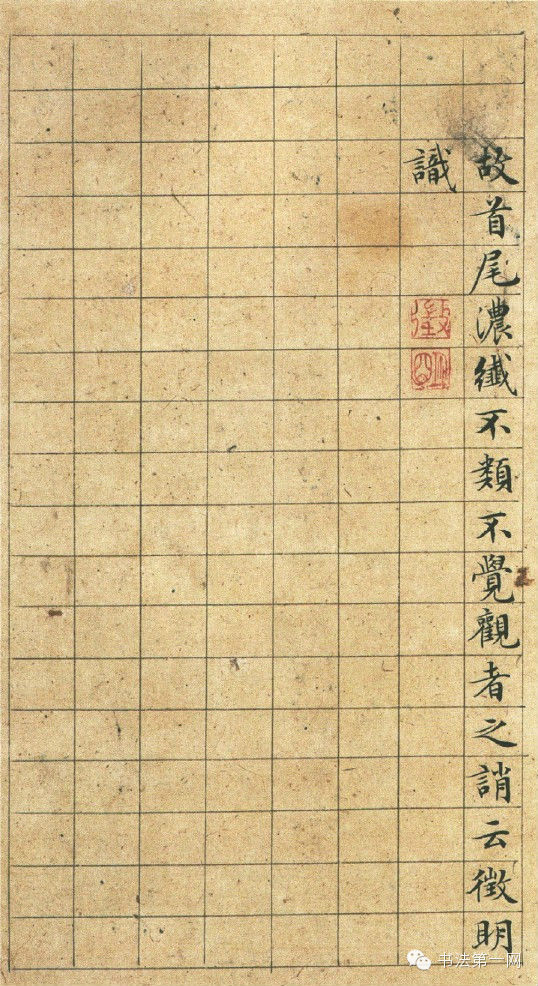 故首尾濃纖不類不覺觀者之誚云徵明
識
徵
明
书法第一网